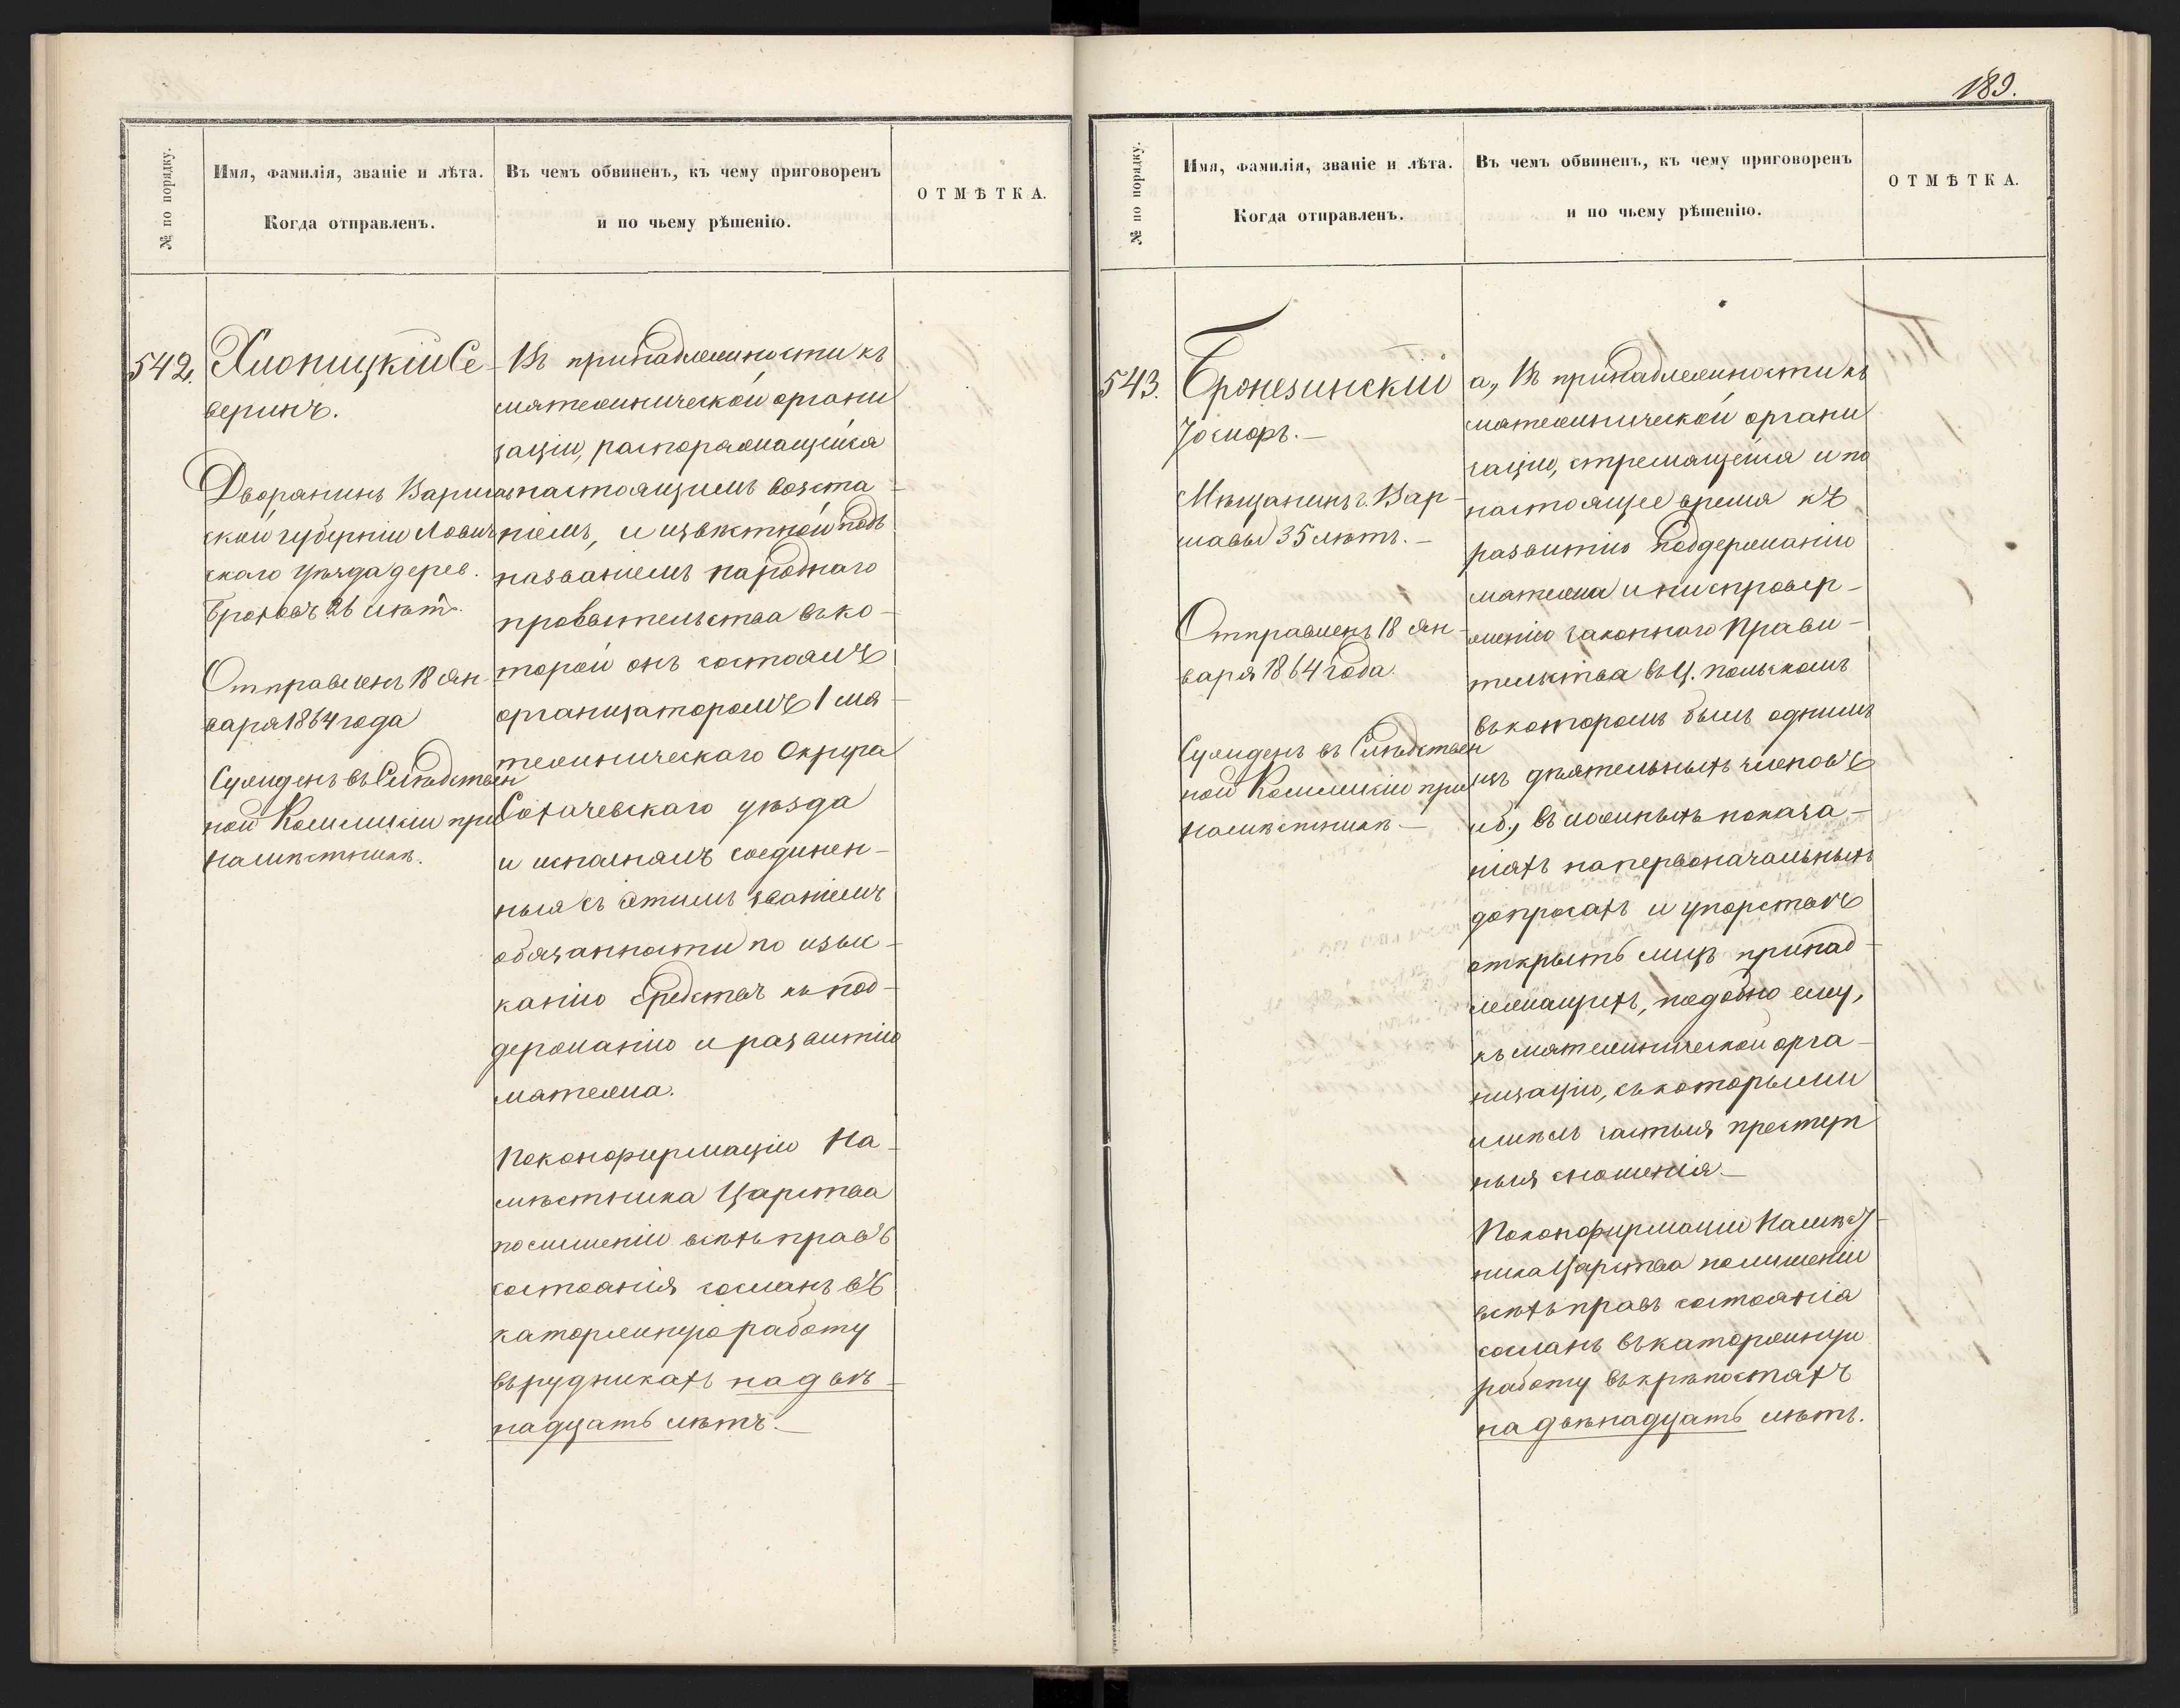 189.
№ по порядку.
Имя, фамилія, званіе и лѣта.
Когда отправленъ.
Въ чемъ обвиненъ, къ чему приговоренъ
и по чьему рѣшенію.
ОТМѢТКА.
542.
Хмоницкій Се-
веринъ.
Дворянинъ Варшав
ской губерніи Лович
скаго уѣзда дерев.
26 лѣтъ.
Отправленъ 18 Ян-
варя 1864 года
Сужденъ въ Слѣдствен
ной Коммисіи при
Намѣстникѣ.
Въ принадлежности къ
мятежнической органи
заціи, распоряжающейся
настоящимъ возста-
ніемъ, и извѣстной подъ
названіемъ народнаго
правительства въ ко-
торой онъ состоялъ
организаторомъ 1 мя-
тежническаго Округа
Сохачевскаго уѣзда
и исполнялъ соединен-
ныя съ этимъ званіемъ
обязанности по изыс-
канію средствъ къ под-
держанію и развитію
мятежа.
По конфирмаціи На-
мѣстника Царства
по лишеніи всѣхъ правъ
состоянія сосланъ въ
каторжную работу
въ рудникахъ на двѣ-
надцать лѣтъ.—
№ по порядку.
Имя, фамилія, званіе и лѣта.
Когда отправленъ.
Въ чемъ обвиненъ, къ чему приговоренъ
и по чьему рѣшенію.
ОТМѢТКА.
543.
Бронезинскій
Іосифъ.—
Мѣщанинъ г. Вар-
шавы 35 лѣтъ.—
Отправленъ 18 Ян-
варя 1864 года.
Сужденъ въ Слѣдствен
ной Коммисіи при
Намѣстникѣ.—
а, Въ принадлежности къ
мятежнической органи
заціи, стремящейся и по
настоящее время къ
развитію поддержанію
мятежа и ниспровер-
женію законнаго Прави-
тельства въ Ц. Польскомъ
въ которомъ былъ однимъ
изъ дѣятельныхъ членовъ
и б., въ ложныхъ показа-
ніяхъ на первоначальныхъ
допросахъ и упорствѣ
открыть лицъ принад-
лежащихъ, подобно ему,
къ мятежнической орга-
низаціи, съ которыми
имѣлъ частыя преступ
ныя сношенія.—
По конфирмаціи Намѣст-
ника Царства по лишеніи
всѣхъ правъ состоянія
сосланъ въ каторжную
работу въ крѣпостяхъ
на двѣнадцать лѣтъ.